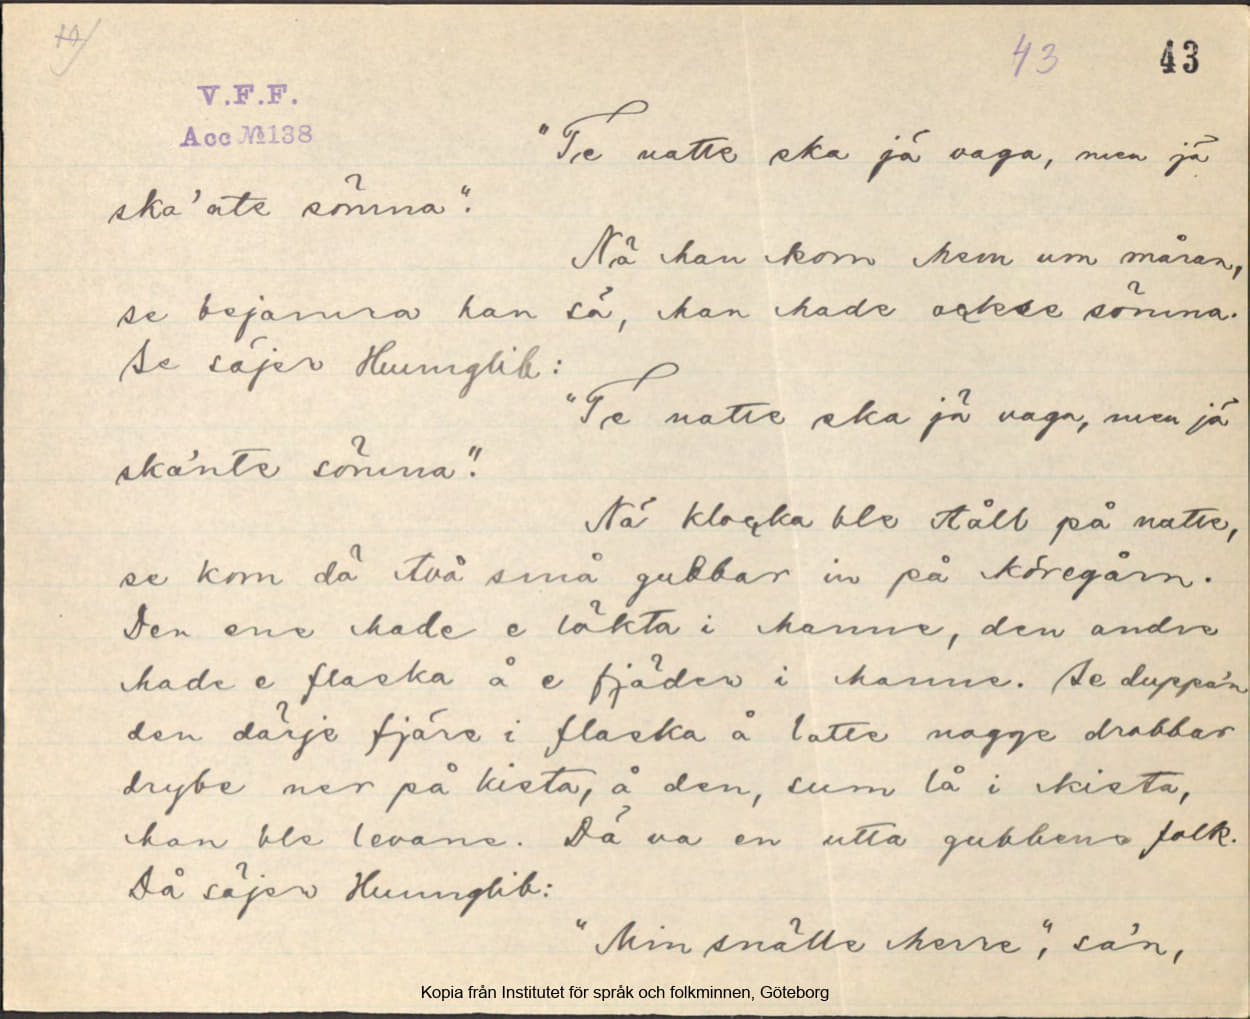 10
43 43
V.F.F.
Acc № 138
"Te natte ska jä vaga, men jä
ska'nte sömna".
Nä han kom hem um måran,
se bejamra han sä, han hade ockse sömna.
Se säjer Hunnglib:
"Te natte ska jä vaga, men jä
ska'nte sömna".
Nä klocka ble tåll på natte,
se kom dä två små gubbar in på köregårn.
Den ene hade e läkta i hanne, den andre
hade e flaska å e fjäder i hanne. Se duppa'n
den därje fjäre i flaska å latte nagge drabbar
drybe ner på kista, å den, sum lå i kista,
han ble levane. Dä va en utta gubbens folk.
Då säjer Hunnglib:
"Min snälle herre", sa'n,
Kopia från Institutet för språk och folkminnen, Göteborg